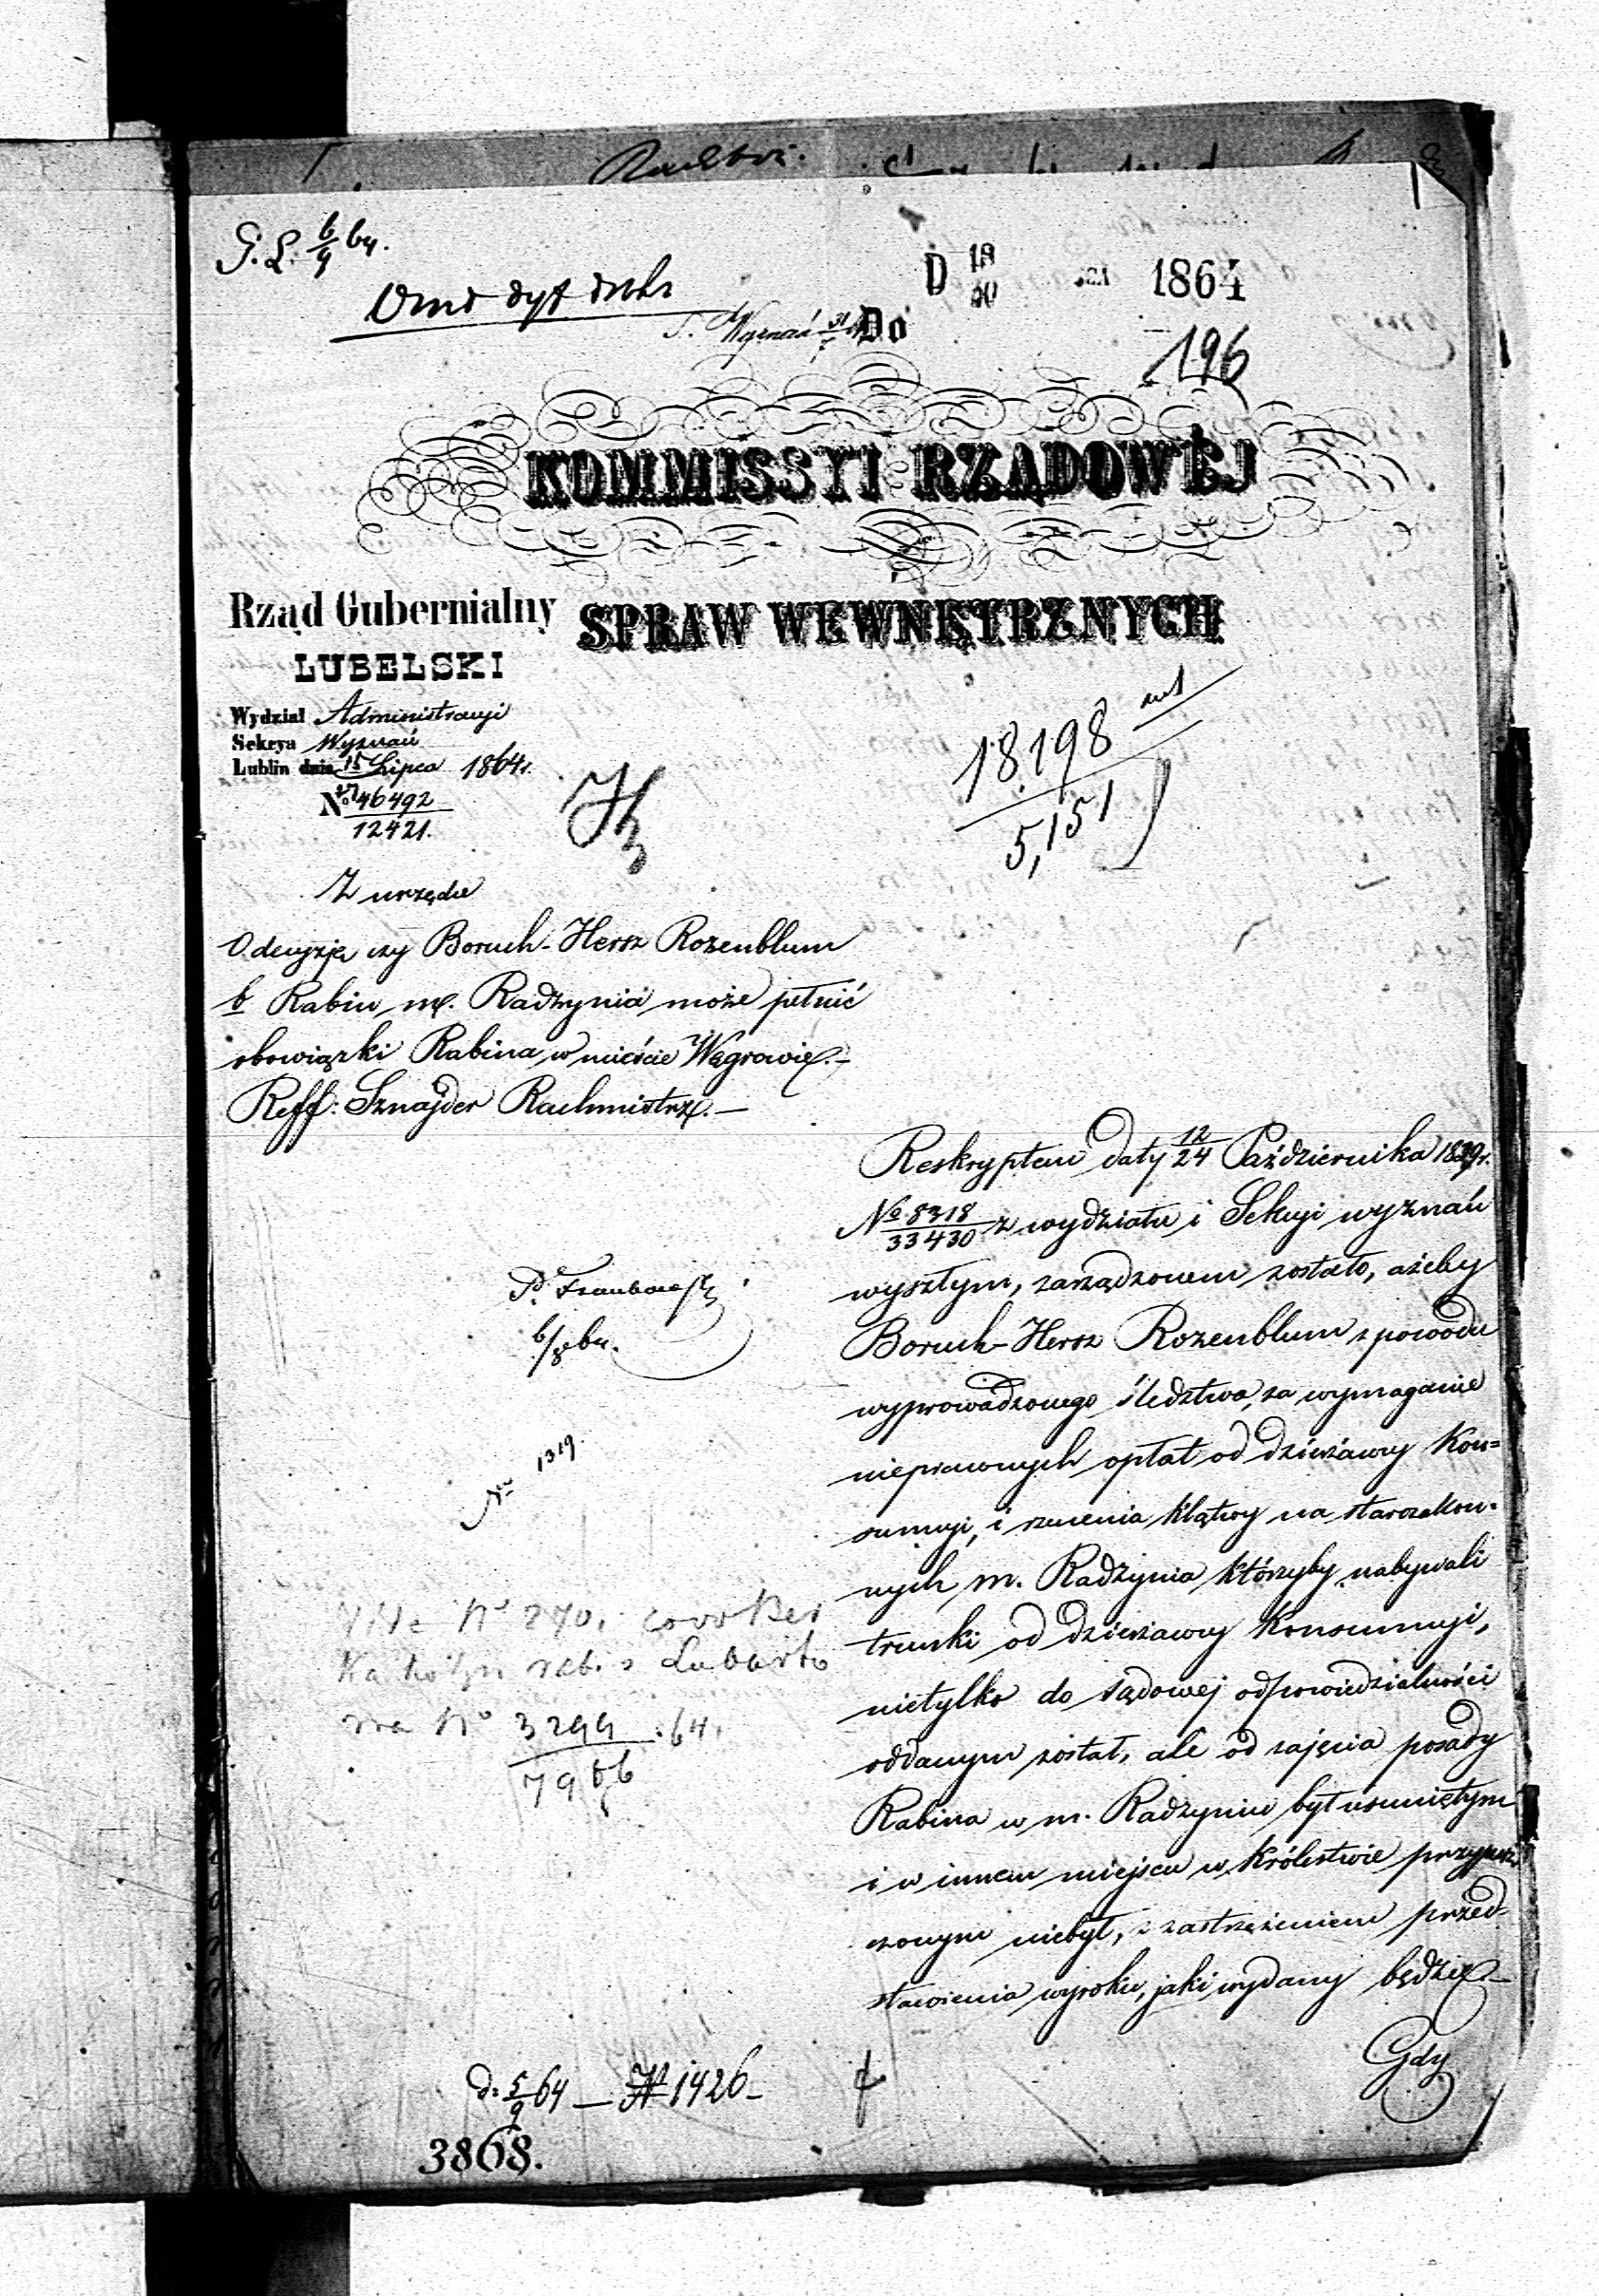 G. L. 6/9 64.
D 18/30 1864
S. Wyznań 31/7
Do
196
KOMMISSYI RZĄDOWÉJ
SPRAW WEWNĘTRZNYCH
Rząd Gubernialny
LUBELSKI
Wydział Administracyi
Sekcya Wyznań
Lublin dnia 15/27 Lipca 1864 r.
No 46492/12421.
18198
5,151
Z urzędu
O decyzję czy Boruch-Hersz Rozenblum
b Rabin m. Radzynia może pełnić
obowiązki Rabina w mieście Węgrowie.—
Reff: Sznajder Rachmistrz.—
Reskryptem daty 12/24 Października 1839 r.
No 8318/33430 z wydziału i Sekcyi wyznań
wyszłym, zarządzonem zostało, ażeby
Boruch-Hersz Rozenblum z powodu
wyprowadzonego śledztwa, za wymaganie
nieprawnych opłat od dzierżawcy Kon=
sumcyi, i rzucenia klątwy na starozakon-
nych m. Radzynia którzyby nabywali
trunki od dzierżawcy Konsumcyi,
nietylko do sądowej odpowiedzialności
oddanym został, ale od zajęcia posady
Rabina w m. Radzyniu był usuniętym
i w innem miejscu w Królestwie przypusz
czonym niebył, z zastrzeżeniem przed-
stawienia wyroku, jaki wydany będzie.—
Gdy
No 1319.
Vide No 270,
rabi Lubarto
na No 3299/7966 .64.
d: 5/9 64 — 1426 —
3868.